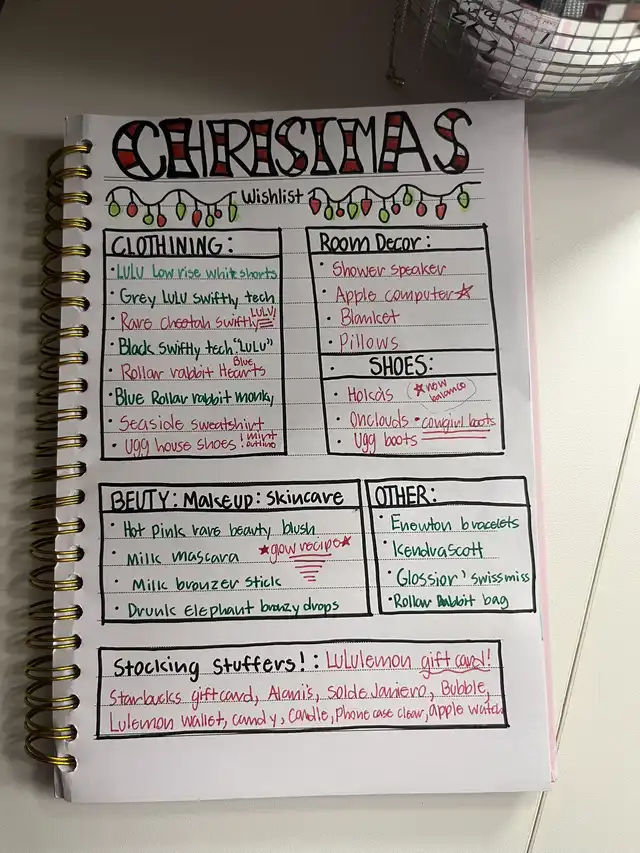 CHRISTMAS
Wishlist
CLOTHINING:
• LULU Low rise white shorts
• Grey LULU swiftly tech
• Rare cheetah swiftly LULU!
• Black swiftly tech "LULU"
• Rollar rabbit Hearts Blue
• Blue Rollar rabbit monky
• Seaside sweatshirt
• Ugg house shoes ! mint outline
Room Decor:
• Shower speaker
• Apple computer ★
• Blanket
• Pillows
• SHOES:
• Hokas ★ now balance
• Onclouds • cowgirl boots
• Ugg boots
BEUTY: Makeup: Skincare
• Hot pink rare beauty blush
• Milk mascara ★ gow recipe ★
• Milk bronzer stick
• Drunk elephant bronzy drops
OTHER:
• Enewton bracelets
• Kendrascott
• Glossior' swissmiss
• Rollar Rabbit bag
Stocking Stuffers!: LULUlemon gift card!
Starbucks giftcard, Alanis, Solde Janiero, Bubble,
Lulemon wallet, candy, candle, phone case clear, apple watch